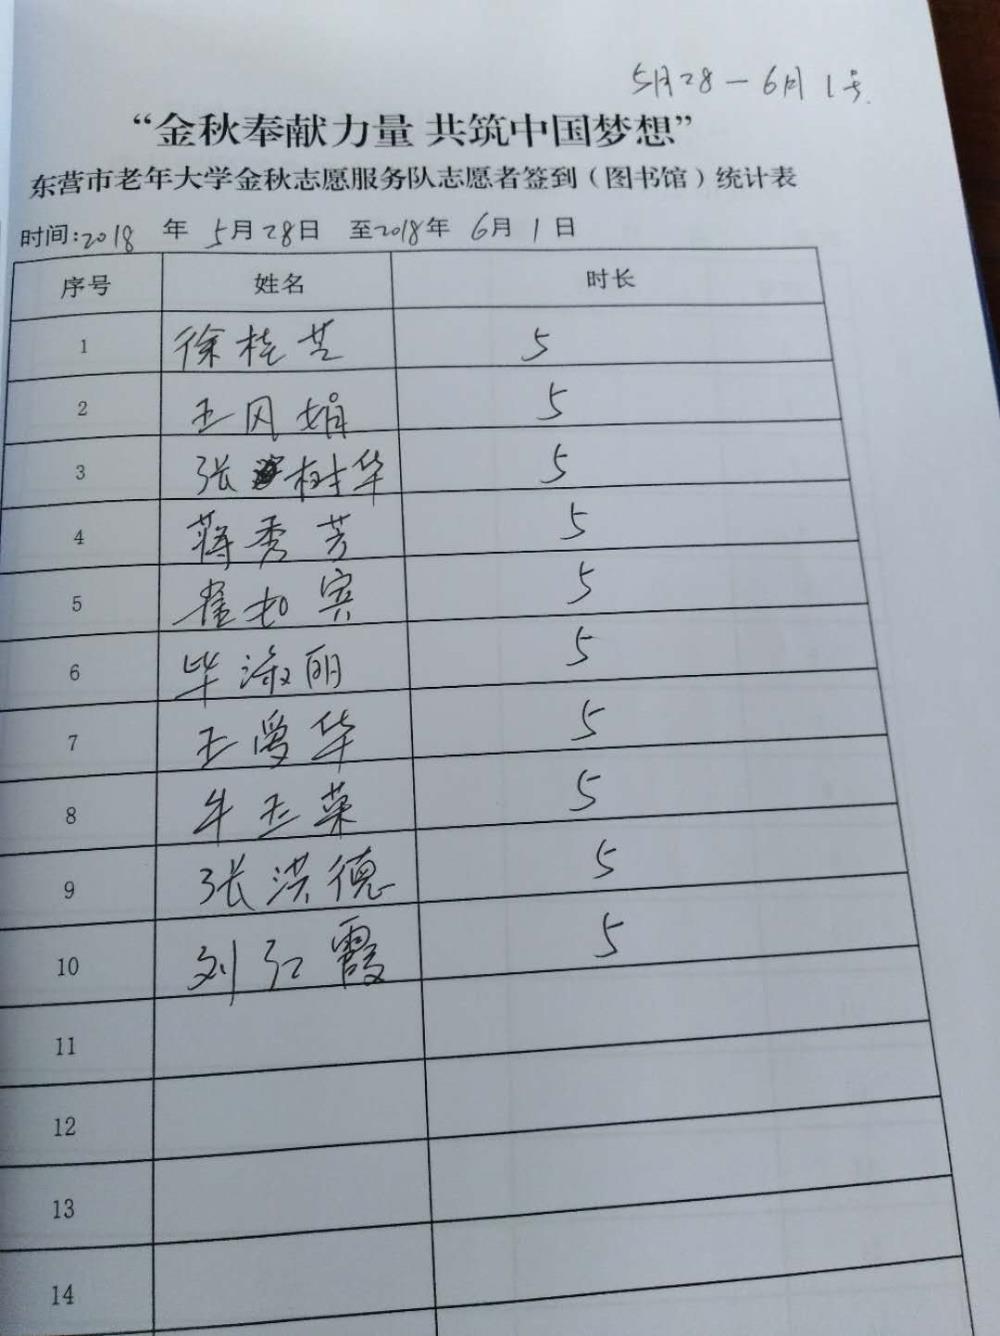 5月28-6月1号.
“金秋奉献力量 共筑中国梦想”
东营市老年大学金秋志愿服务队志愿者签到(图书馆)统计表
时间:2018 年 5月28日 至2018年 6月1日
序号 姓名 时长
1 徐桂芝 5
2 王风娟 5
3 张树华 5
4 蒋秀芳 5
5 5
6 毕淑丽 5
7 王爱华 5
8 牛玉荣 5
9 张洪德 5
10 刘红霞 5
11
12
13
14